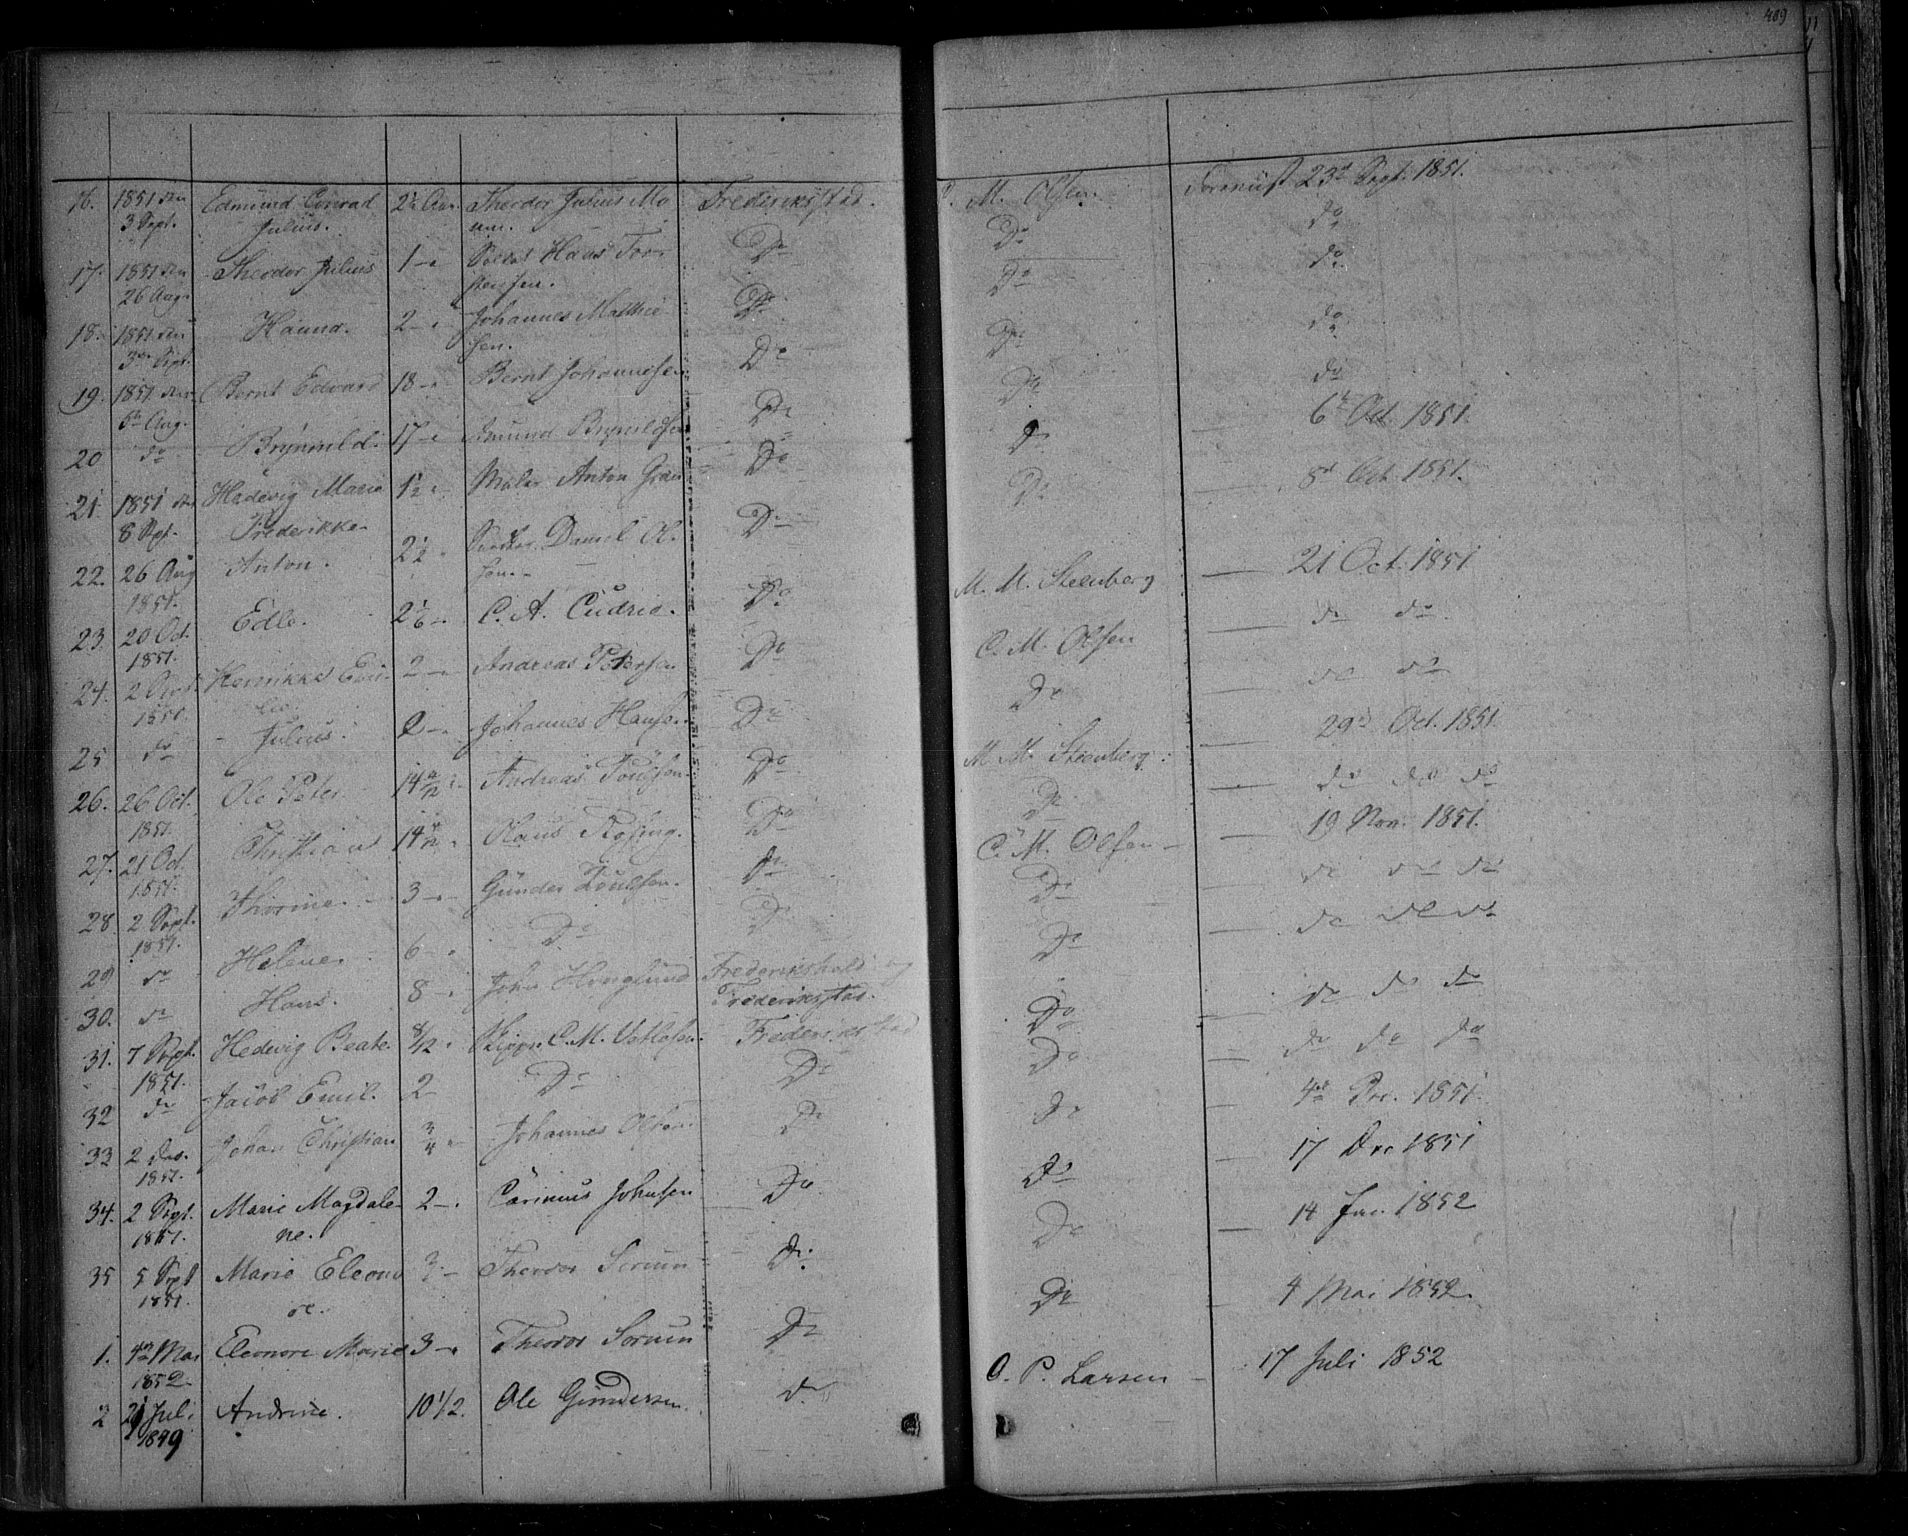 409
16. 1851 den Edmund Conrad 2½ Aar. Theodor Julius Mo Frederiksstad. M. Olsen. Foreviist 23d Sept. 1851.
3 Sept. Julius. um. Do Do do
17. 1851 den Theodor Julius 1 — Hans Tor- Do Do do
26 Aug. stensen.
18. 1851 den Hanna. 2 — Johannes Mathie Do Do do
3die Sept. sen.
19. 1851 den Bernt Edvard 18 — Bernt Johannesen Do Do do
5te Aug.
20 do Brynnild. 17 — Amund Brynildsen Do D — 6te Oct. 1851.
21. 1851 den Hedevig Marie 1½ — Maler Anton Do Do — 8d Oct. 1851.
8 Sept. Frederikke
22. 26 Aug Anton. 2½ Daniel Ol- Do M. M. Steenberg — 21 Oct. 1851
1851. sen.
23. 20 Oct. Edle. 2 1/6 — C. A. Cudrio. Do C. M. Olsen — do do
1851.
24. 2 Henrikke Emi- 2 — Andreas Petersen Do Do — do do
1851. lie.
25 do Julius. 2 — Johannes Hansen Do M. M. Steenberg. — 29d Oct. 1851
26. 26 Oct. Ole Peter 14 Andreas Poulsen Do Do — do do do
1851.
27. 21 Oct. Christian 14 Claus Rosing. Do C. M. Olsen — 19 Nov. 1851.
1851.
28. 2 Sept. Thorine. 3 — Gunder Poulsen. Do Do — do do do
1851.
29 do Helene. 6 — Do D Do — do do do
30. do Hans. 8 — John Frederikshald og Do — do do do
Frederiksstad.
31. 7 Sept. Hedevig Beate. 8/12 Skipper C. M. Frederiksstad Do — do do do
1851.
32 do Jacob Emil. 2 — Do Do Do — 4de Dec. 1851
33 2 Dec. Johan Christian 3/4 Johannes Olsen Do Do — 17 Dec 1851
1851.
34. 2 Sept. Marie Magdale- 2 — Carinius Johnsen Do Do — 14 Jan. 1852
1851. ne.
35 5 Sept Marie Eleono 3 — Theodor Sorum Do Do — 4 Mai 1852.
1851. re.
1. 4de Mai Eleonore Marie 3 — Theodor Sorum Do O. P. Larsen — 17 Juli 1852
1852.
2 21 Juli Andrine. 10 1/2. Ole Gundersen. do
1849